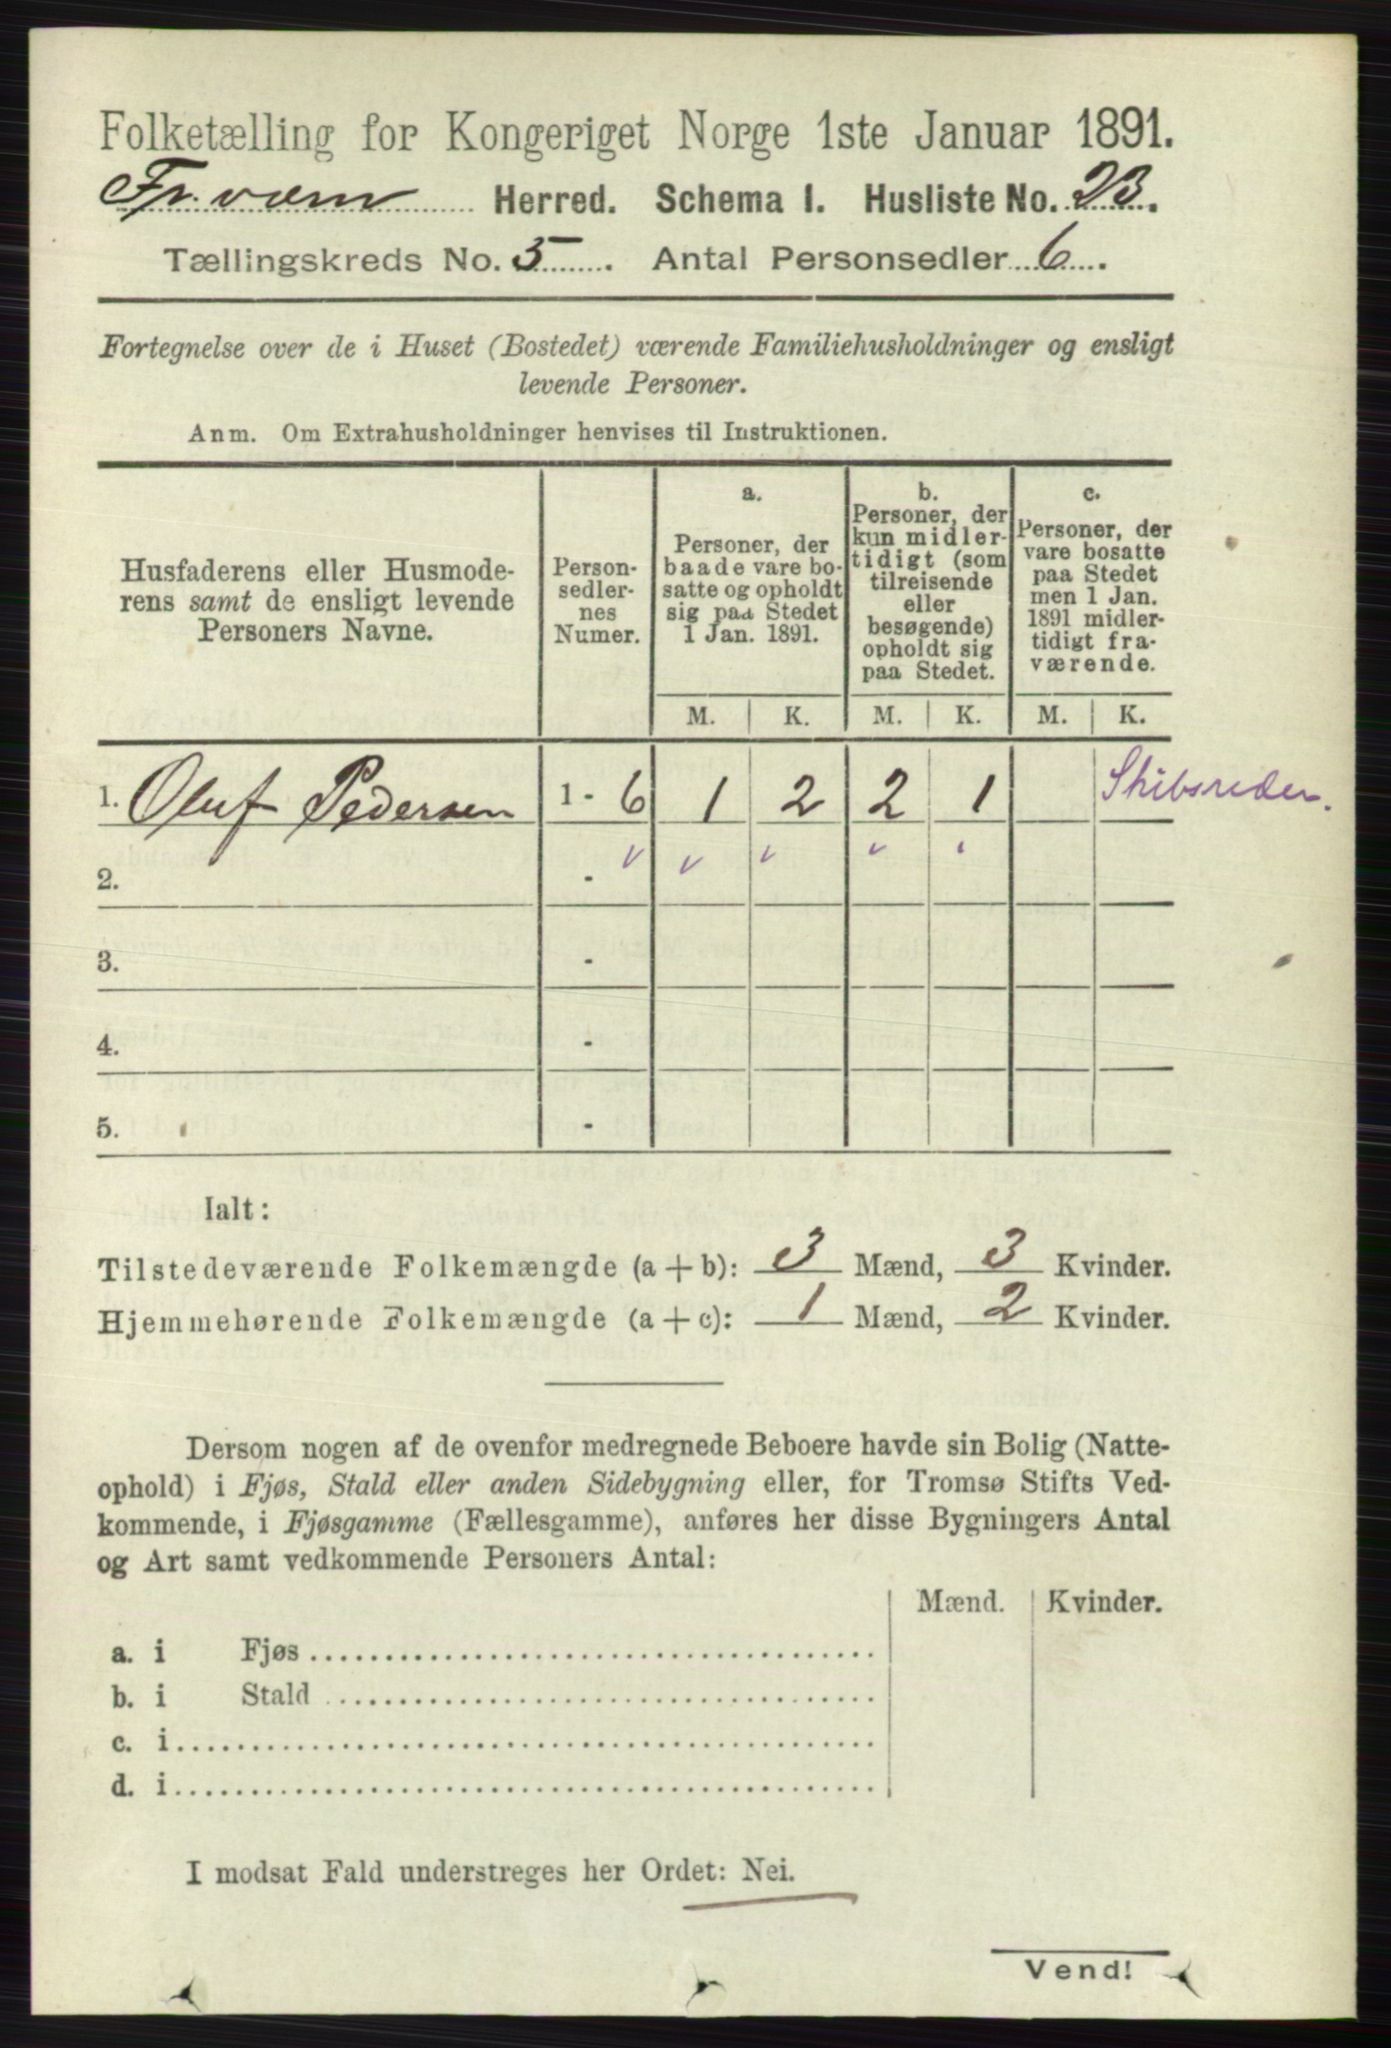 Folketælling for Kongeriget Norge 1ste Januar 1891.
Fr.værn Herred. Schema I. Husliste No. 23.
Tællingskreds No. 5. Antal Personsedler 6.
Fortegnelse over de i Huset (Bostedet) værende Familiehusholdninger og ensligt
levende Personer.
Anm. Om Extrahusholdninger henvises til Instruktionen.
Husfaderens eller Husmode-
rens samt de ensligt levende
Personers Navne.
Person-
sedler-
nes
Numer.
a.
Personer, der
baade vare bo-
satte og opholdt
sig paa Stedet
1 Jan. 1891.
b.
Personer, der
kun midler-
tidigt (som
tilreisende
eller
besøgende)
opholdt sig
paa Stedet.
c.
Personer, der
vare bosatte
paa Stedet
men 1 Jan.
1891 midler-
tidigt fra-
værende.
M. K. M. K. M. K.
1. Oluf Pedersen 1 - 6 1 2 2 1 Skibsreder.
2. -
3. -
4. -
5. -
Ialt:
Tilstedeværende Folkemængde (a + b): 3 Mænd, 3 Kvinder.
Hjemmehørende Folkemængde (a + c): 1 Mænd, 2 Kvinder.
Dersom nogen af de ovenfor medregnede Beboere havde sin Bolig (Natte-
ophold) i Fjøs, Stald eller anden Sidebygning eller, for Tromsø Stifts Ved-
kommende, i Fjøsgamme (Fællesgamme), anføres her disse Bygningers Antal
og Art samt vedkommende Personers Antal:
Mænd. Kvinder.
a. i Fjøs
b. i Stald
c. i
d. i
I modsat Fald understreges her Ordet: Nei.
Vend!